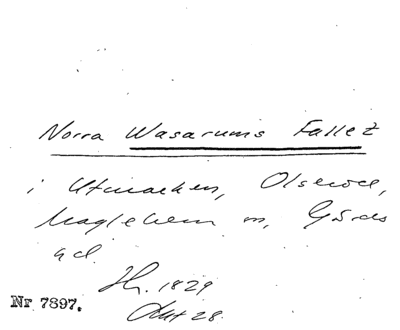 Norra Wasarums Fallet
i Utmarken, Olseröd,
Maglehem sn, Gärds
hd.
Skr. 1829
Akt 28.
Nr 7897.